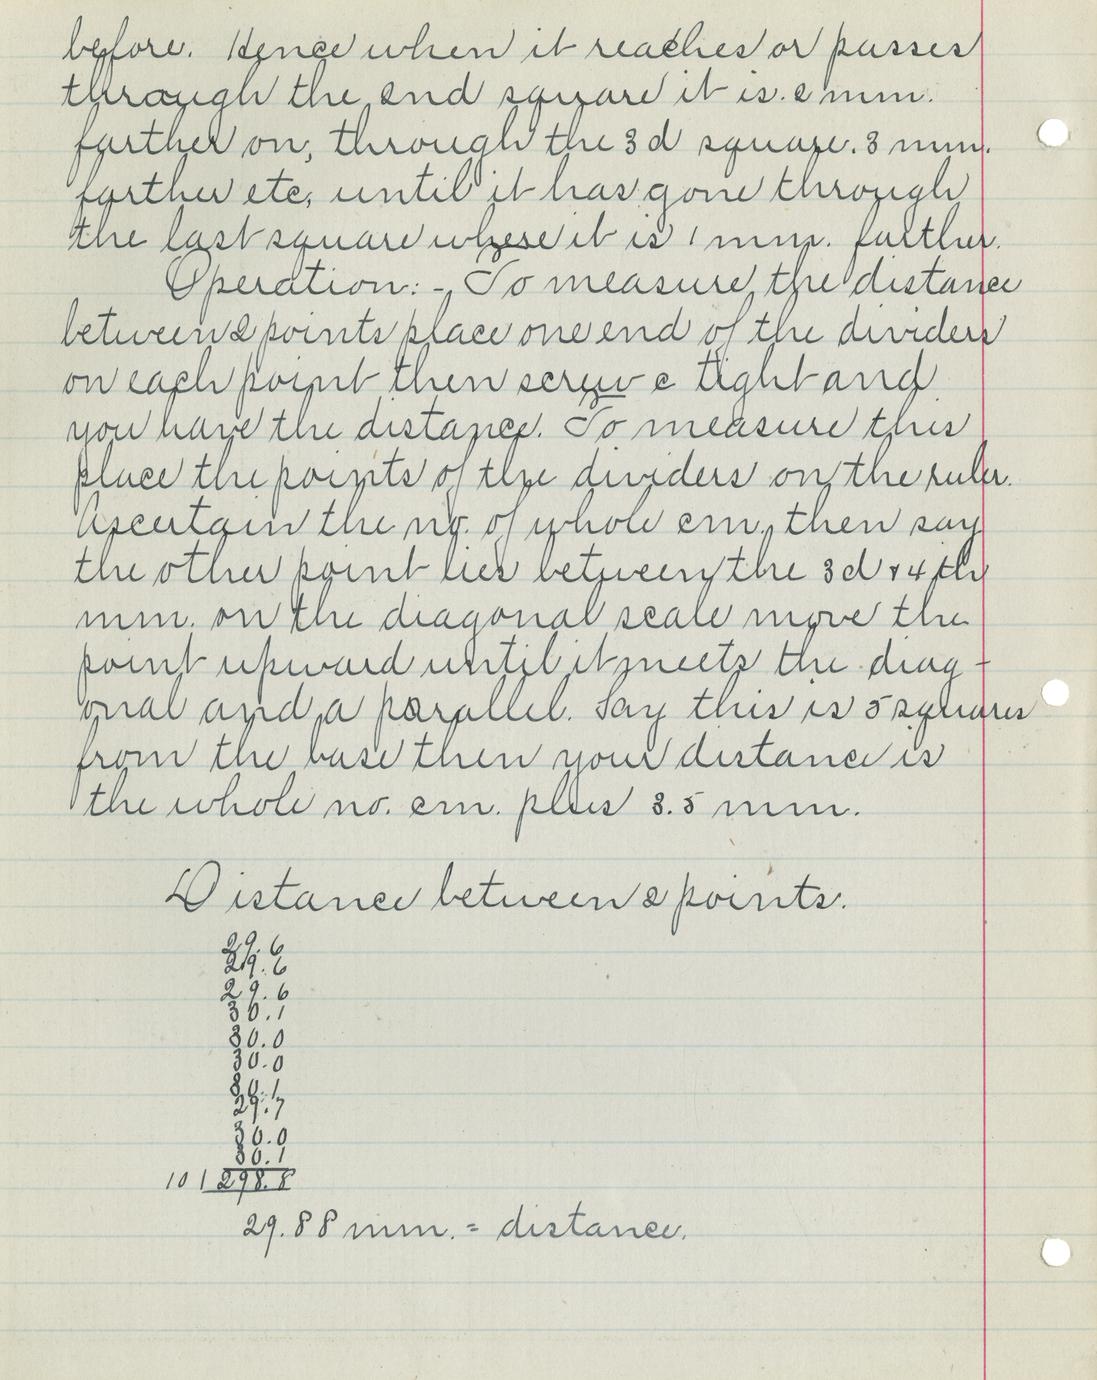 before. Hence when it reaches or passes
through the 2nd square it is .2 mm.
farther on, through the 3d square .3 mm.
farther etc, until it has gone through
the last square where it is 1 mm. farther.
Operation:- To measure, the distance
between 2 points place one end of the dividers
on each point then screw c tight and
you have the distance. To measure this
place the points of the dividers on the ruler.
Ascertain the no. of whole cm, then say
the other point lies between the 3d & 4th
mm. on the diagonal scale move the
point upward until it meets the diag-
onal and a parallel. Say this is 5 squares
from the base then your distance is
the whole no. cm. plus 3.5 mm.
Distance between 2 points.
29.6
29.6
29.6
30.1
30.0
30.0
30.1
29.7
30.0
30.1
10 | 298.8
29.88 mm. = distance.